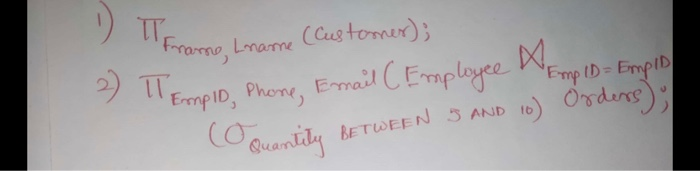 1) π Fname, Lname (Customer);
2) π EmpID, Phone, Email (Employee ⋈ EmpID = EmpID
(σ Quantity BETWEEN 5 AND 10) Orders);